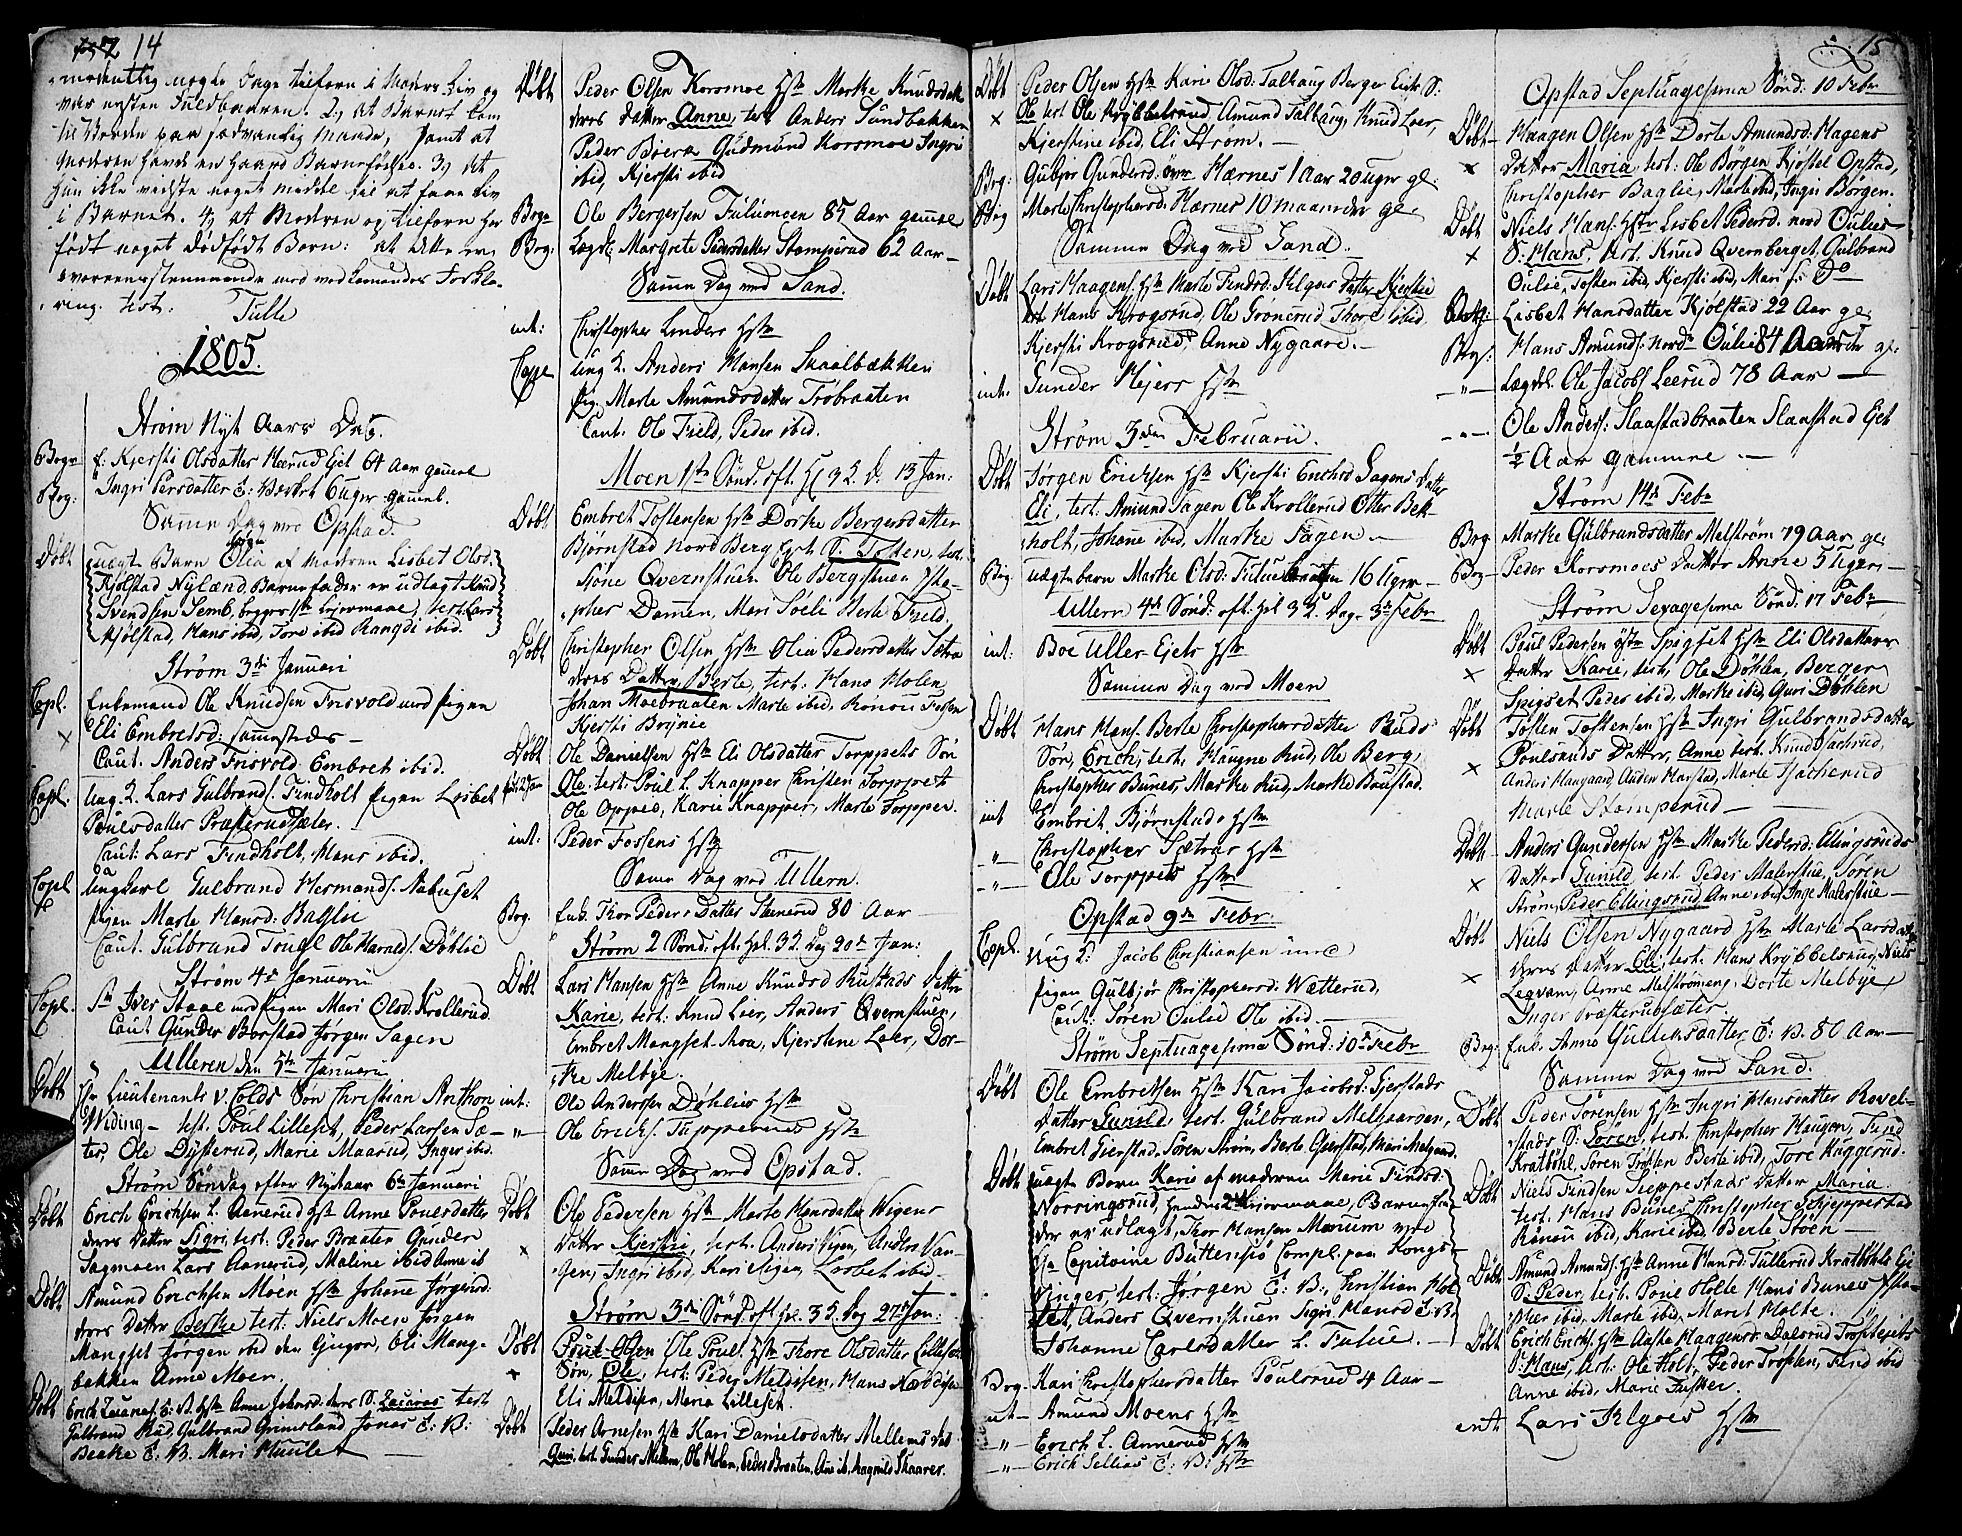 14
nogle Dage tilforn i Moders Liv og
var næsten Fuldbaaren. 2, at Barnet kom
til Verden paa sædvanlig Maade, samt at
Moderen havde en haard Barnefødsel. 3, at
hun ikke vidste noget Middel til at faae Liv
i Barnet. 4, at Moderen og tilforn har
født noget Dødfødt Barn: at dette er
overeensstemmende med vedkommendes Forkla-
ring. test:
Tulle
1805.
Strøm Nyt Aars Dag.
Begr f: Kjersti Olsdatter Eiet 64 Aar gammel
Beg: Ingri Persdatter E: Værket 6 uger gammel.
Samme Dag ved Opstad.
Døbt uægte Barn Olia af Moderen Lisbet Olsd:
Kjølstad Nylænd, Barnefader er udlagt Knud
Svendsen Semb, begges 1ste Leiermaal, test: Lars
Kjølstad, Hans ibid, Tore ibid Rangdi ibid.
Strøm 3di Januari
Copl. Enkemand Ole Knudsen Frisvold med Pigen
Eli Embretsd: sammestedes
Caut. Anders Frisvold Embret ibid.
Copl. Ung. K. Lars Gulbrands. Findholt Pigen Lisbet
Poulsdatter Præsterudsæter.
Caut: Lars Findholt, Hans ibid.
Copl Ungkarl Gulbrand Hermands. Nabuset
Pigen Marte Hansd: Baglie
Caut. Gulbrand Tougl Ole Harals. Døhlie
Strøm 4de Januarii
Copl. Sr Iver Aaal med Pigen Mari Olsd: Krollerud
Caut Gunder Borstad Jørgen Sagen
Ulleren den 5te Januarii
Døbt Hr Lieutenant v. Colds Søn Christian Anthon
Widing - test. Poul Lilleset, Peder Larsen Sæ-
ter, Ole Dysterud, Marie Maarud, Inger ibid.
Strøm Søndag efter Nytaar 6te Januarii
Døbt Erich Erichsen L. Aanerud Hstr Anne Poulsdatter
deres Datter Sigri, test. Peder Braaten Gunder
Sagmoen Lars Aanerud, Malene ibid Anne ib
Døbt Amund Erichsen Moen Hstr Johane Jørgensd:
deres Datter Berthe test: Niels Moen Jørgen
Mangset Jørgen ibid den Yngre, Eli Mang-
bakken Anne Moen.
Døbt Erich Zacarias. E: V. Hstr Anne Johansd: deres S. Zacarias test
Gulbrand Rud, Gulbrand Grimsland Jonas E: V:
Beathe E: V. Mari Haule
Døbt Peder Olsen Korsmoe Hstr Marthe Knudsdatt
deres Datter Anne, test Anders Sundbakken
Peder Bøera Gudmund Korsmoe Ingri
ibid, Kjersti ibid
Begr Ole Bergersen Fulumoen 85 Aar gammel
Beg. Lægdl. Margrete Pedersdatter Stomperud 62 Aar -
Samme Dag ved Sand.
int: Christopher Lunders Hstr
Copl Ung K. Anders Hansen Skaalbækken
Pig. Marte Amundsdatter Trøbraaten
Caut. Ole Field, Peder ibid.
Moen 1ste Sønd. eft. H 3 K. d. 13 Jan:
Døbt Embret Tostensen Hstr Dorthe Bergersdatter
Bjørnstad Nord Berg Eiet S. Tosten, test.
Søne Qvernstuen Ole Bergstuen
pher Damen, Mari Søeli Berte Field.
Døbt Christopher Olsen Hstr Olia Pedersdatter Sætra
deres Datter Berte, test: Hans Holen
Johan Moebraaten Marte ibid, Ronou Fossen
Kjersti Brynie
Døbt Ole Danielsen Hstr Eli Olsdatter Torppets Søn
Ole, test: Poul L. Knapper Christen Torppet
Ole Oppen, Karie Knapper, Marte Torppet.
int: Peder Fossens Hstr
Samme Dag ved Ullern.
Beg. Enk. Thore Peders Datter Stenerud 80 Aar
Strøm 2 Sønd: eft. Hel. 3 K. Dag 20de Jan:
Døbt Lars Hansen Hstr Anne Knudsd Rustads Datter
Karie, test: Knud Leer, Anders Qvernstuen,
Embret Mangset Moa, Kjerstene Leer, Dor-
the Melbye.
int: Ole Andersen Døhlies Hstr
„ Ole Erichs. Hstr
Samme Dag ved Opstad.
Døbt Ole Pedersen Hstr Marte Hansdatter Wigens
Datter Kjersti, test. Anders Vigen, Anders Van-
gen, Ingri ibid, Kari Vigen, Lisbet ibid.
Strøm 3die Sønd. eft. Hel. 3 K. Dag 27de Jan:
Døbt Poul Olsen Ole Poul. Hstr Thore Olsdatter Lilleset
Søn, Ole, test: Peder Meldisen, Hans
Eli Meldisen, Maria Lilleset.
Døbt Peder Arnesen Hstr Kari Danielsdatter Mellems
Guri, test: Gunder Mellem, Ole Holen, Peder Braaten, Ane ib, Magnild Skaarer.
15
Døbt Peder Olsen Hstr Karie Olsd. Salhaug Berger Eiets S:
Ole test. Ole Krybbelsrud, Amund Salhaug, Knud Leer,
Kjerstine ibid, Eli Strøm.
Beg: Gulbjør Gundersd: Hærnes 1 Aar 20 uger gl:
Beg Marte Christophersd: Hærnes 10 maaneder gl.
Samme Dag ved Sand.
Døbt Lars Haagens. Hstr Marte Findsd: Helgaas Datter Kjerstie
test Hans Krogsrud, Ole Grønerud Thore ibid.
Kjersti Krogsrud, Anne Nygaard.
int. Gunder Mejers Hstr
Strøm 3die Februarii.
Døbt Jørgen Erichsen Hstr Kjersti Erichsd Sagens Datter
Eli, test. Amund Sagen Ole Krollerud Otter Bek-
holt, Johane ibid, Marthe Sagen.
Beg. uægte barn Marthe Olsd: Fuluebraaten 16 Uger
Ullern 4de Sønd: eft: Hel 3 K. Dag. 3de Febr
int: Boe Uller-Eiets Hstr
Samme Dag ved Moen
Døbt Hans Hans. Berte Christophersdatter Ruds
Søn, Erich, test. Haugne Rud, Ole Berg,
Christopher Bunes, Marthe Rud, Marthe Baustad.
int Embret Bjørnstads Hstr
„ Christopher Sætras Hstr
„ Ole Torppets Hstr
Opstad 9de Febr.
Copl. Ung K: Jacob Christiansen med
Pigen Gulbjør Christophersd: Wætterud,
Caut: Søren Oulie Ole ibid.
Strøm Septuagesima Sønd: 10de Febr
Døbt Ole Embretsen Hstr Kari Jacobsd: Gjerstads
Datter Gunild test. Gulbrand Melgaarden,
Embret Gierstad, Søren Strøm, Berte Gjerstad, Mari Melgaard.
Døbt uægte Barn Karie af moderen Marie Findsd:
Norringsrud, hendes 2det Leiermaal, Barnefa-
der er udlagt, Thor Hansen Marium ved
Hr Capitaine Büttensiø Compl. paa Kongs-
vinger test: Jørgen E: V., Christian Hol-
set, Anders Qvernstuen Sigri Hansd E: V:
Johanne Carlsdatter L. Fulue.
Beg. Kari Christophersdatter Poulsrud 4 Aar -
int - Amund Moens Hstr
„ Erich L. Annerud Hstr
„ Erich Sellies E: V: Hstr
Opstad Septuagesima Sønd: 10 Febr
Døbt Haagen Olsen Hstr Dorte Amundsd: Hagens
Datter Maria, test: Ole Børgen Kjøstel Opstad,
Christopher Baglie, Marte ibid, Ingri Børgen.
Døbt Niels Hans. Hstr Lisbet Pedersd. nord Oulies
S: Hans, test. Knud Qvernberget, Gulbrand
Oulie, Tosten ibid, Kjersti ibid, Mari f: Do
Beg: Lisbet Hansdatter Kjølstad 22 Aar gl.
Beg: Hans Amunds. nord Oulie 84 Aar gl:
„ Lægdl. Ole Jacobs Leerud 78 Aar -
„ Ole Anders: Slaastadbraaten Slaastad Eiet
½ Aar gammel
Strøm 14de Febr
Beg Marthe Gulbrandsdatter Melstrøm 79 Aar gl.
Beg Peder Korsmoes Datter Anne 5 Uger
Strøm Sexagesima Sønd. 17 Febr
Døbt Poul Pedersen Spigset Hstr Eli Olsdatters
Datter Karie, test, Ole Døhlen, Berger
Spigset, Peder ibid, Marthe ibid, Guri Døhlen
Døbt Tosten Tostensen Hstr Ingri Gulbrandsdatter
Poulsruds Datter, Anne test. Knud Sacherud,
Anders Haugaard, Auden Harstad, Marte Sacherud
Marte Stomperud
Døbt Anders Gundersen Hstr Marthe Pedersd: Ellingsruds
Datter Gunild test. Peder Malerstue, Søren
Strøm, Peder Ellingsrud, Anne ibid, Inge Malerstue
Døbt Niels Olsen Nygaard Hstr Marte Larsdatter
deres Datter Eli, test. Hans Krybbelsrud, Niels
Legvam, Arne Melstrømeng, Dorte Melbye
Inger Præsterudsæter.
Beg: Enk. Anne Gulliksdatter E: V. 80 Aar -
Samme Dag ved Sand.
Døbt Peder Sørensen Hstr Ingri Hansdatter Rovel-
stads S: Søren, test. Christopher Haugen, Find
Kratbøhl, Søren Trøften Berte ibid, Tore Huggerud.
Døbt Niels Findsen Skieppestads Datter Maria.
test: Hans Bunes Christopher Schjeppestad
Rønou ibid, Karie ibid. Berte Støen -
Døbt Amund Amunds. Hstr Anne Hansd: Tullerud Kratbøhls Ei
S. Peder test. Poul Holte Hans Bunes Christo-
pher ibid, Marte ibid, Marit Holte.
Døbt Erich Erichs. Hstr Aaste Haagensd: Dalsrud
S: Hans, test: Ole Holt, Peder Trøften, Find ibid
Anne ibid, Marie Fisker.
int Lars Helgaes Hstr